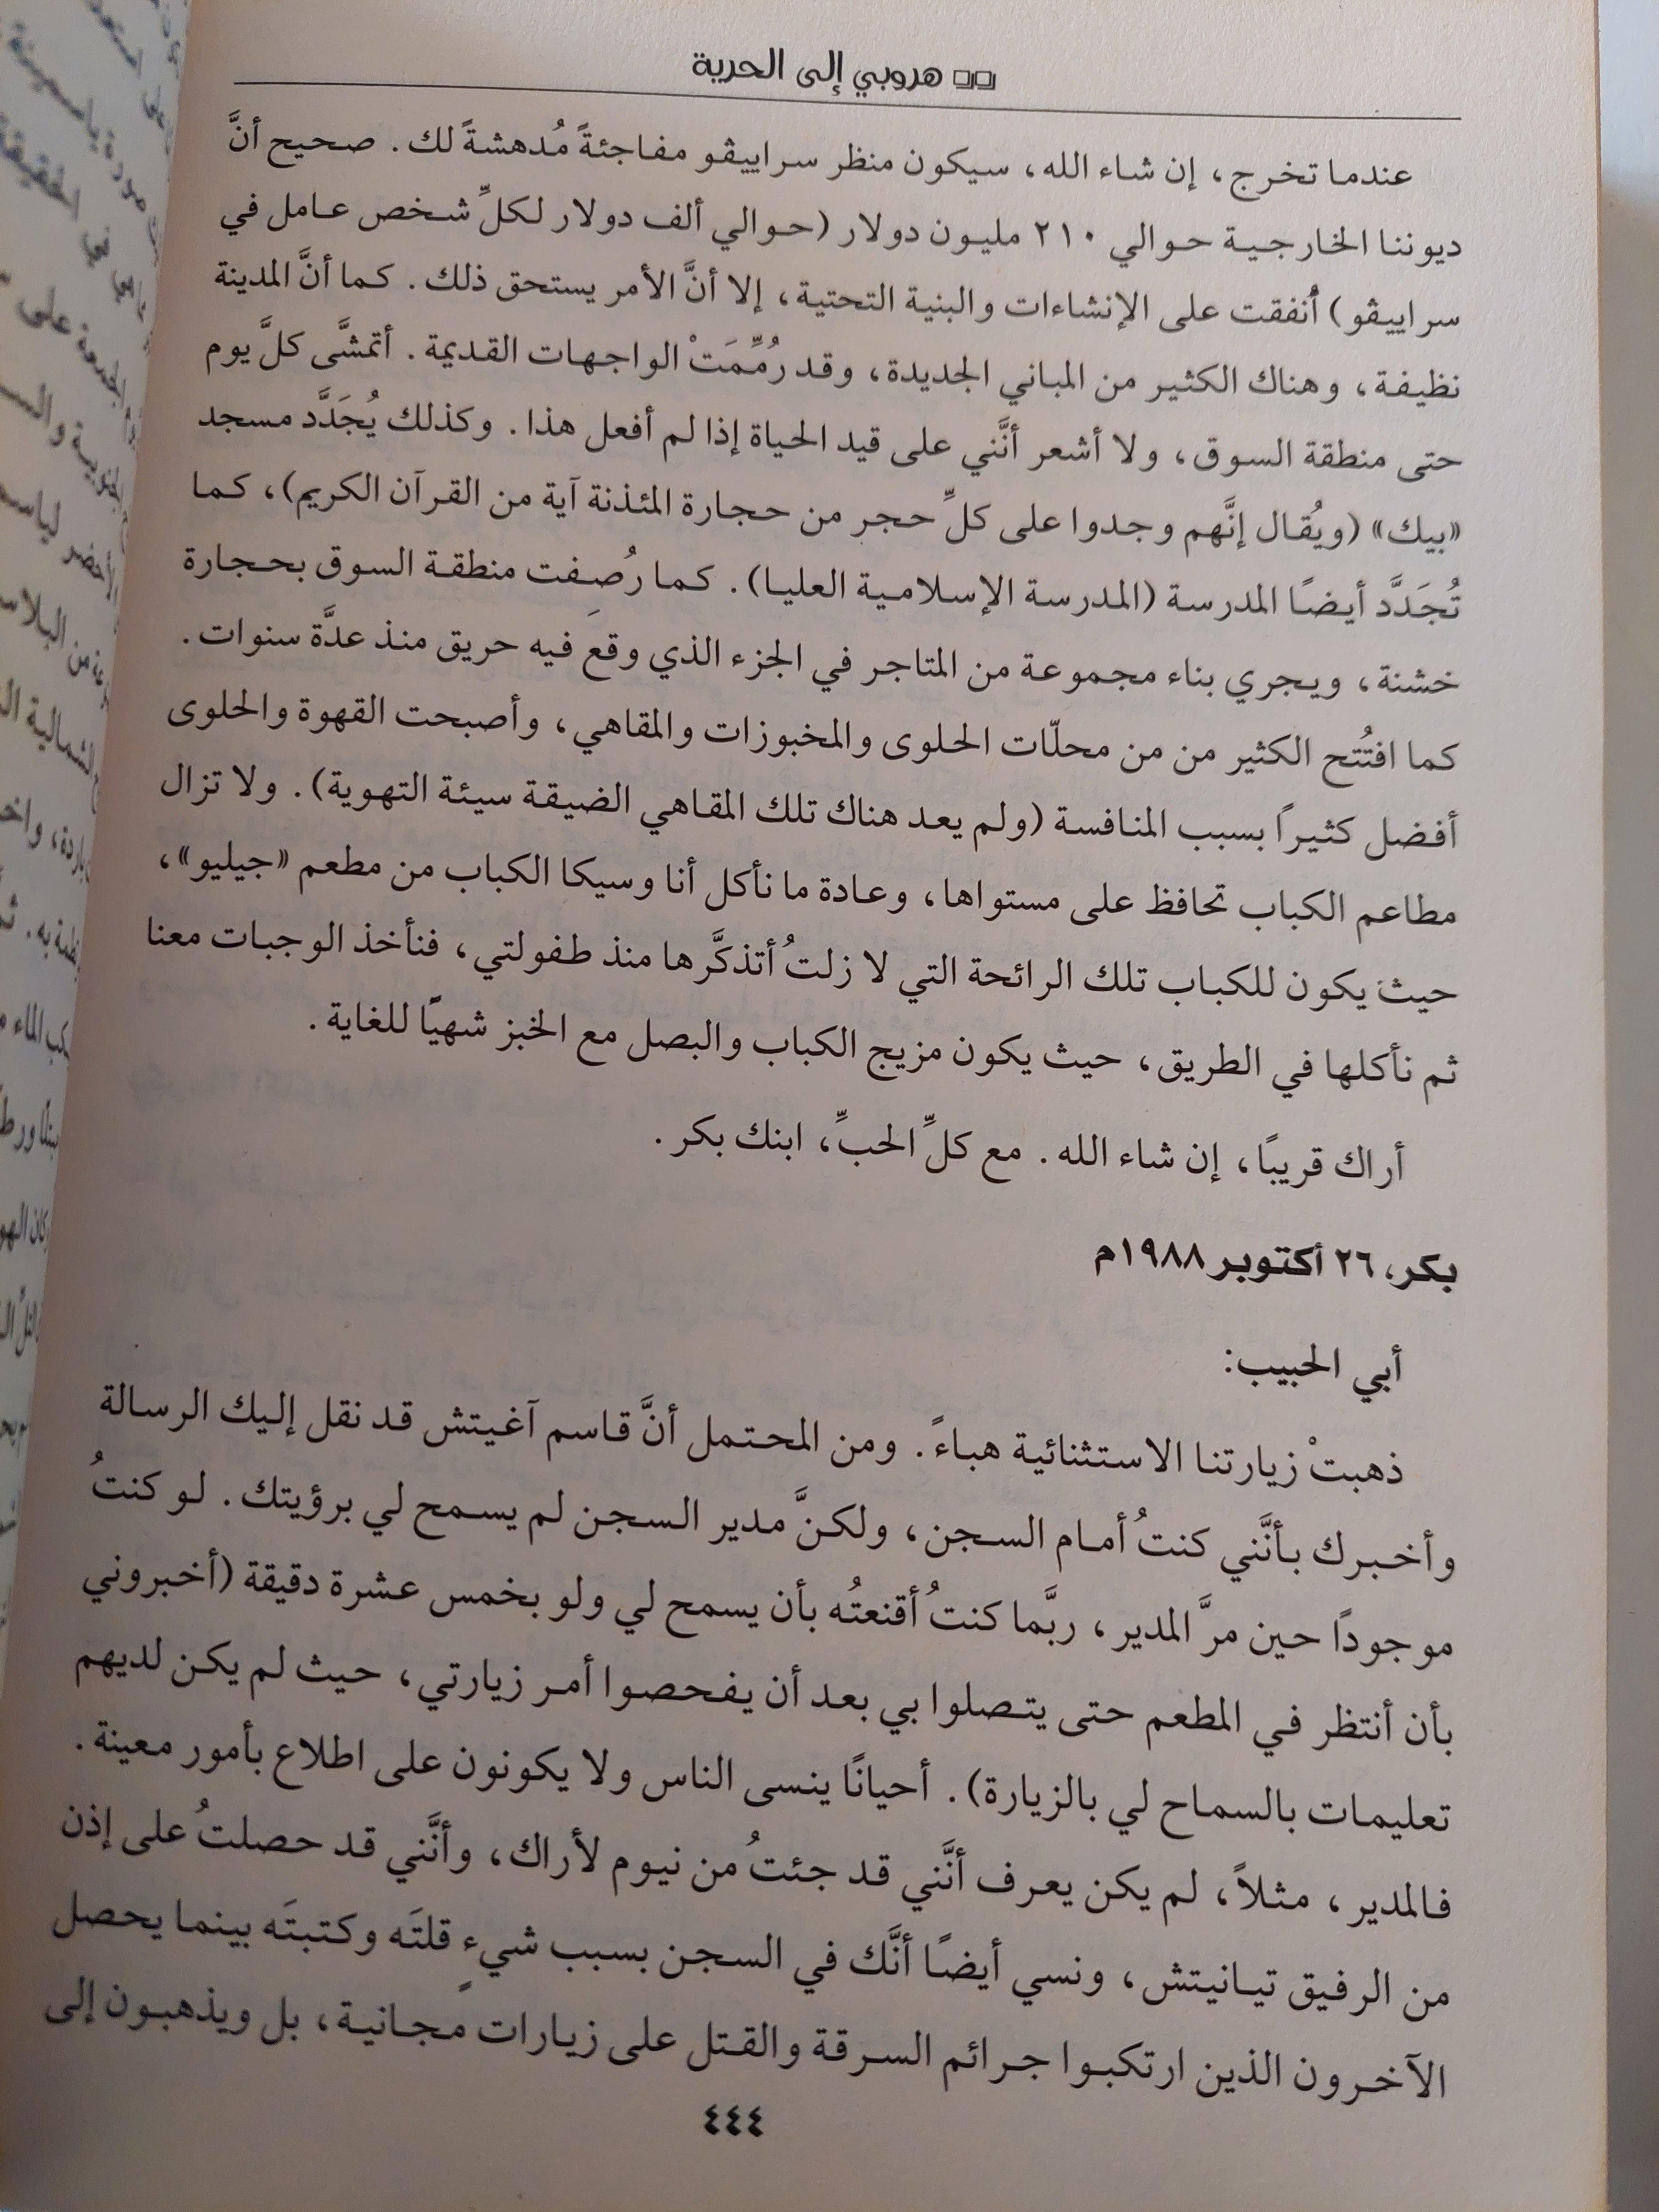 هروبي إلى الحرية
عندما تخرج، إن شاء الله، سيكون منظر سراييڤو مفاجئةً مُدهشةً لك. صحيح أنَّ
ديوننا الخارجية حوالي ٢١٠ مليون دولار (حوالي ألف دولار لكلِّ شخص عامل في
سراييڤو) أُنفقت على الإنشاءات والبنية التحتية، إلا أنَّ الأمر يستحق ذلك. كما أنَّ المدينة
نظيفة، وهناك الكثير من المباني الجديدة، وقد رُمِّمَتْ الواجهات القديمة. أتمشَّى كلَّ يوم
حتى منطقة السوق، ولا أشعر أنَّني على قيد الحياة إذا لم أفعل هذا. وكذلك يُجَدَّد مسجد
«بيك» (ويُقال إنَّهم وجدوا على كلِّ حجر من حجارة المئذنة آية من القرآن الكريم)، كما
تُجَدَّد أيضًا المدرسة (المدرسة الإسلامية العليا). كما رُصِفت منطقة السوق بحجارة
خشنة، ويجري بناء مجموعة من المتاجر في الجزء الذي وقعَ فيه حريق منذ عدَّة سنوات.
كما افتُتح الكثير من من محلّات الحلوى والمخبوزات والمقاهي، وأصبحت القهوة والحلوى
أفضل كثيراً بسبب المنافسة (ولم يعد هناك تلك المقاهي الضيقة سيئة التهوية). ولا تزال
مطاعم الكباب تحافظ على مستواها، وعادة ما نأكل أنا وسيكا الكباب من مطعم «جيليو»،
حيث يكون للكباب تلك الرائحة التي لا زلتُ أتذكَّرها منذ طفولتي، فنأخذ الوجبات معنا
ثم نأكلها في الطريق، حيث يكون مزيج الكباب والبصل مع الخبز شهيًّا للغاية.
أراك قريبًا، إن شاء الله. مع كلِّ الحبِّ، ابنك بكر.
بكر، ٢٦ أكتوبر ١٩٨٨م
أبي الحبيب:
ذهبتْ زيارتنا الاستثنائية هباءً. ومن المحتمل أنَّ قاسم آغيتش قد نقل إليك الرسالة
وأخبرك بأنَّني كنتُ أمام السجن، ولكنَّ مدير السجن لم يسمح لي برؤيتك. لو كنتُ
موجودًا حين مرَّ المدير، ربَّما كنتُ أقنعتُه بأن يسمح لي ولو بخمس عشرة دقيقة (أخبروني
بأن أنتظر في المطعم حتى يتصلوا بي بعد أن يفحصوا أمر زيارتي، حيث لم يكن لديهم
تعليمات بالسماح لي بالزيارة). أحيانًا ينسى الناس ولا يكونون على اطلاع بأمور معينة.
فالمدير، مثلاً، لم يكن يعرف أنَّني قد جئتُ من نيوم لأراك، وأنَّني قد حصلتُ على إذن
من الرفيق تيانيتش، ونسي أيضًا أنَّك في السجن بسبب شيءٍ قلتَه وكتبتَه بينما يحصل
الآخرون الذين ارتكبوا جرائم السرقة والقتل على زيارات مجانية، بل ويذهبون إلى
٤٤٤